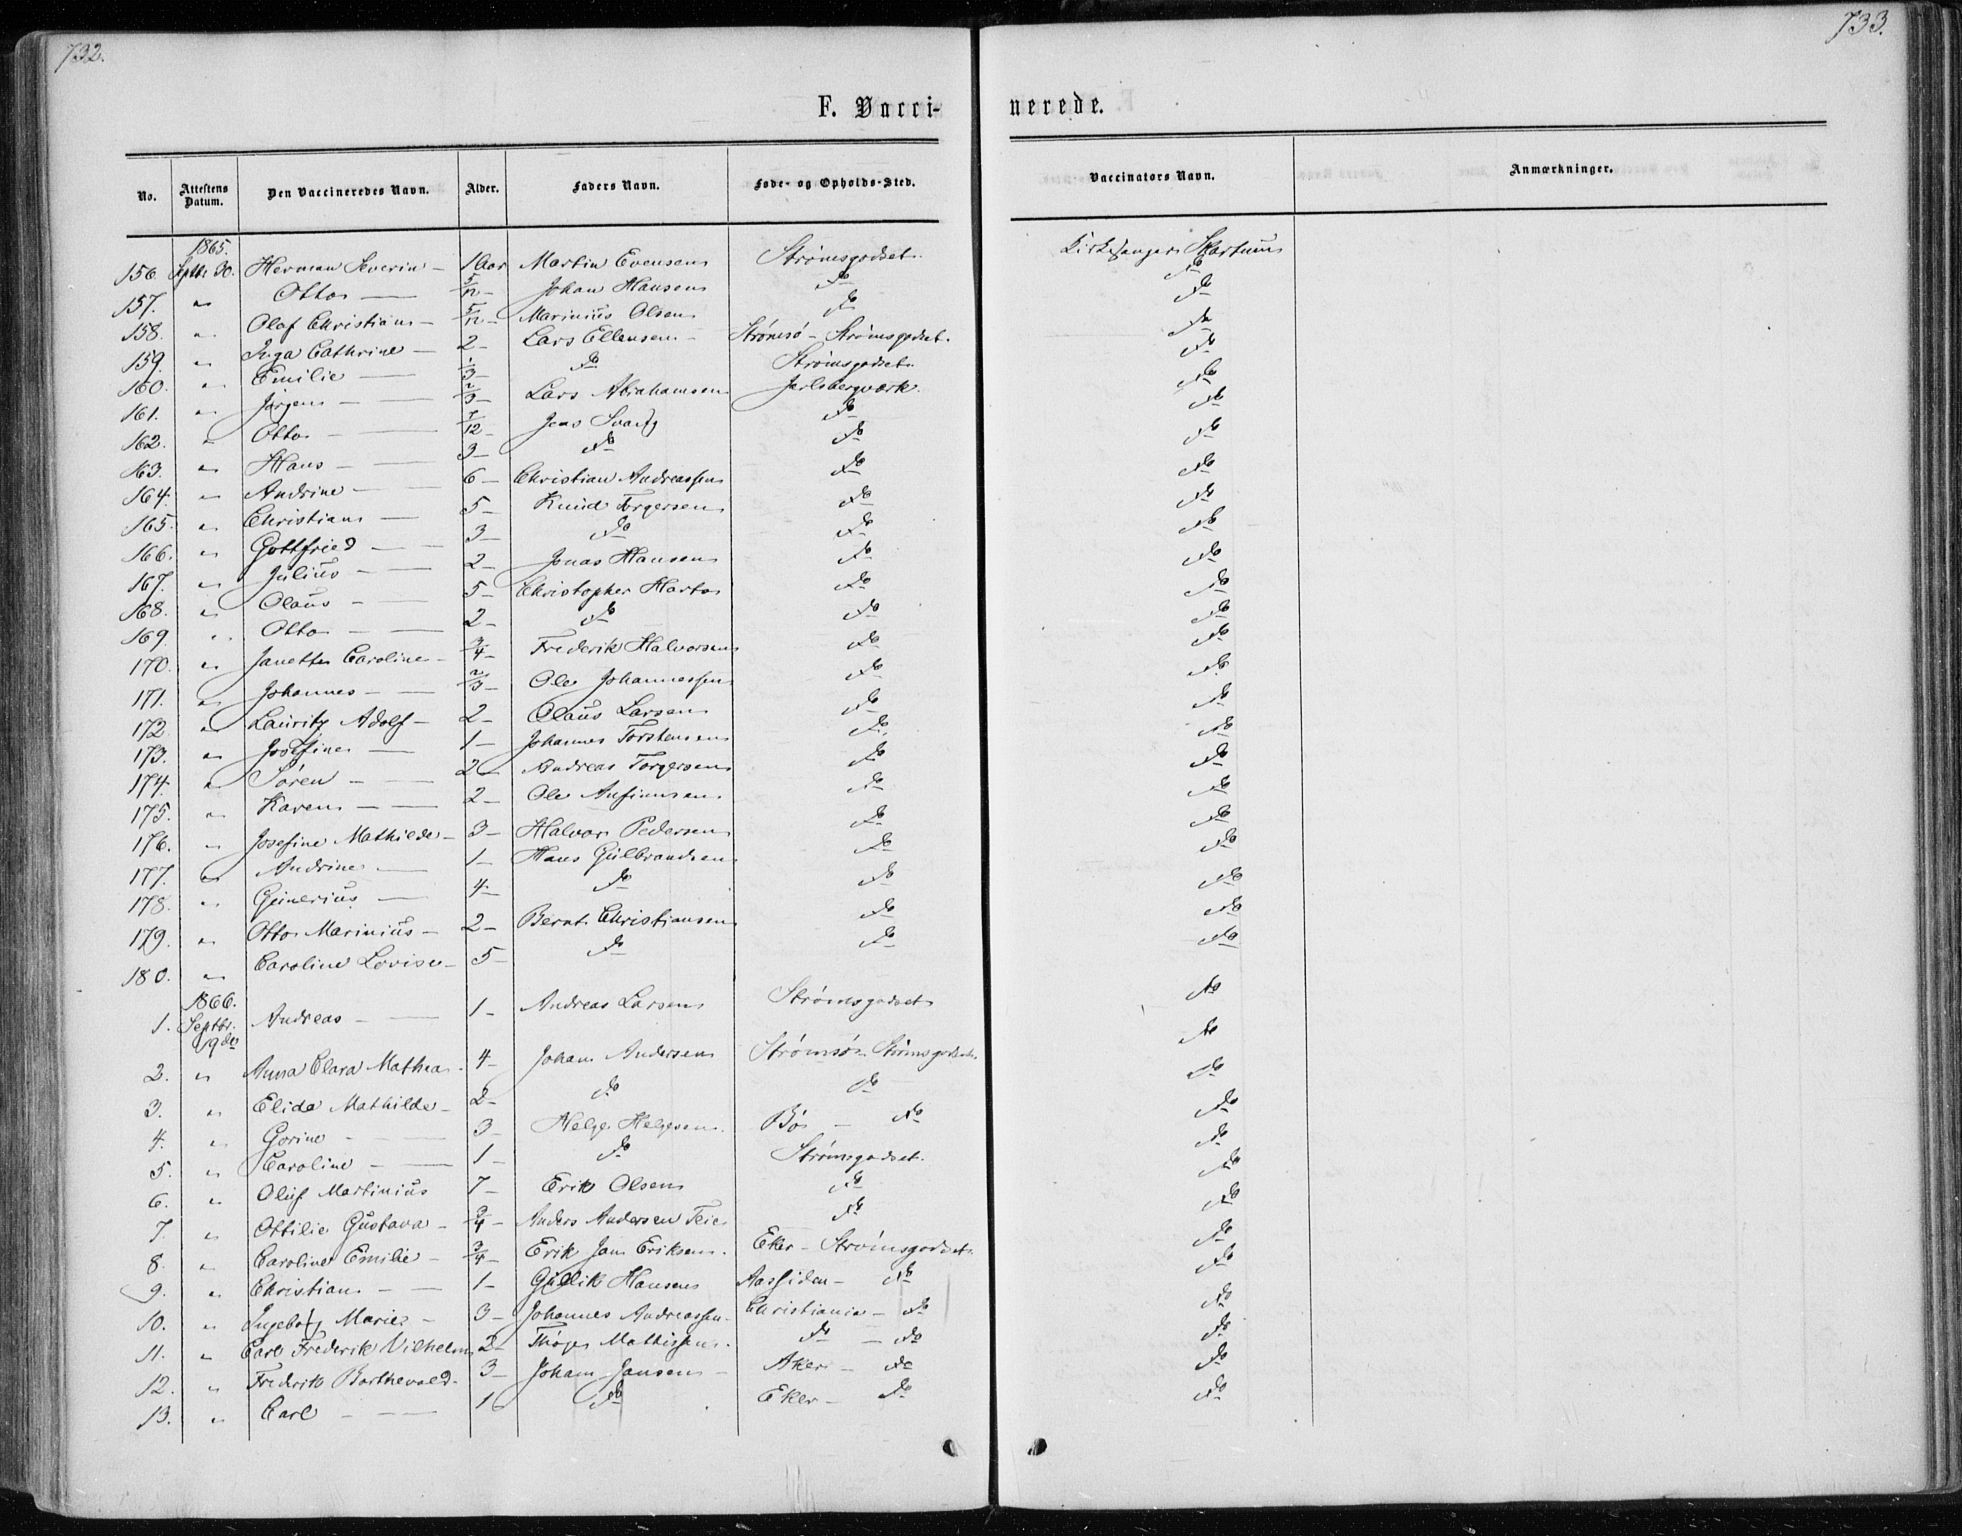 732.
733.
F. Vacci-
nerede.
No. Attestens Datum. Den Vaccineredes Navn. Alder. Faders Navn. Føde- og Opholds-Sted. Vaccinators Navn. Anmærkninger.
1865.
156 Septbr 30. Herman Severin - 1 Aar Martin Evensen Strømsgodset. Kirkesanger Skartum
157. " Otto - 5/12 - Johan Hansen do do
158. " Olaf Christian - 5/12 - Marinius Olsen do do
159. " Inga Cathrine - 2 - Lars Ellensen - Strømsø - Strømsgodset. do
160. " Emilie - 1/3 - do Strømsgodset. do
161. " Jørgen - 2/3 - Lars Abrahamsen Jarlsbergværk. do
162. " Otto - 7/12 - Jens do do
163. " Hans - 3 - do do do
164. " Andrine - 6 - Christian Andreassen do do
165. " Christian - 5 - Knud Torgersen do do
166. " Gottfried - 3 - do do do
167. " Julius - 2 - Jonas Hansen do do
168. " Olaus - 5 - Christopher Harto do do
169. " Otto - 2 - do do do
170. " Janette Caroline - 3/4 - Frederik Halvorsen do do
171. " Johannes - 2/3 - Ole Johannessen do do
172. " Lauritz Adolf - 2 - Olaus Larsen do do
173. " Josefine - 1 - Johannes Torstensen do do
174. " Søren - 2 - Andreas Torgersen do do
175. " Karen - 2 - Ole do do
176. " Josefine Mathilde - 3 - Halvor Pedersen do do
177. " Andrine - 1 - Hans Gulbrandsen do do
178. " Gunerius - 4 - do do do
179. " Otto Marinius - 2 - Bernt Christiansen do do
180. " Caroline Lovise - 5 - do do do
1866.
1. Septbr. 19de Andreas - 1 - Andreas Larsen Strømsgodset do
2. " Anna Clara Mathea - 4 - Johan Andersen Strømsø - Strømsgodset do
3. " Elida Mathilde - 2 - do do do
4. " Gorine - 3 - Helge Helgesen. Bø - do do
5. " Caroline - 1 - do Strømsgodset. do
6. " Oluf Martinius 7 - Erik Olsen do do
7. " Ottilie Gustava - 3/4 - Anders Andersen Teie do do
8. " Caroline Emilie - 3/4 - Erik Jan Eriksen. Eker - Strømsgodset. do
9. " Christian - 1 - Gullik Hansen Aassiden - do do
10. " Ingeborg Marie - 3 - Johannes Andreassen - Christiania - do do
11. " Carl Frederik Vilhelm 2 - Thøger Mathissen. do - do do
12. " Frederik Barthevald - 3 - Johan Jansen - Aker - do do
13. " Carl - 1 do Eker - do do